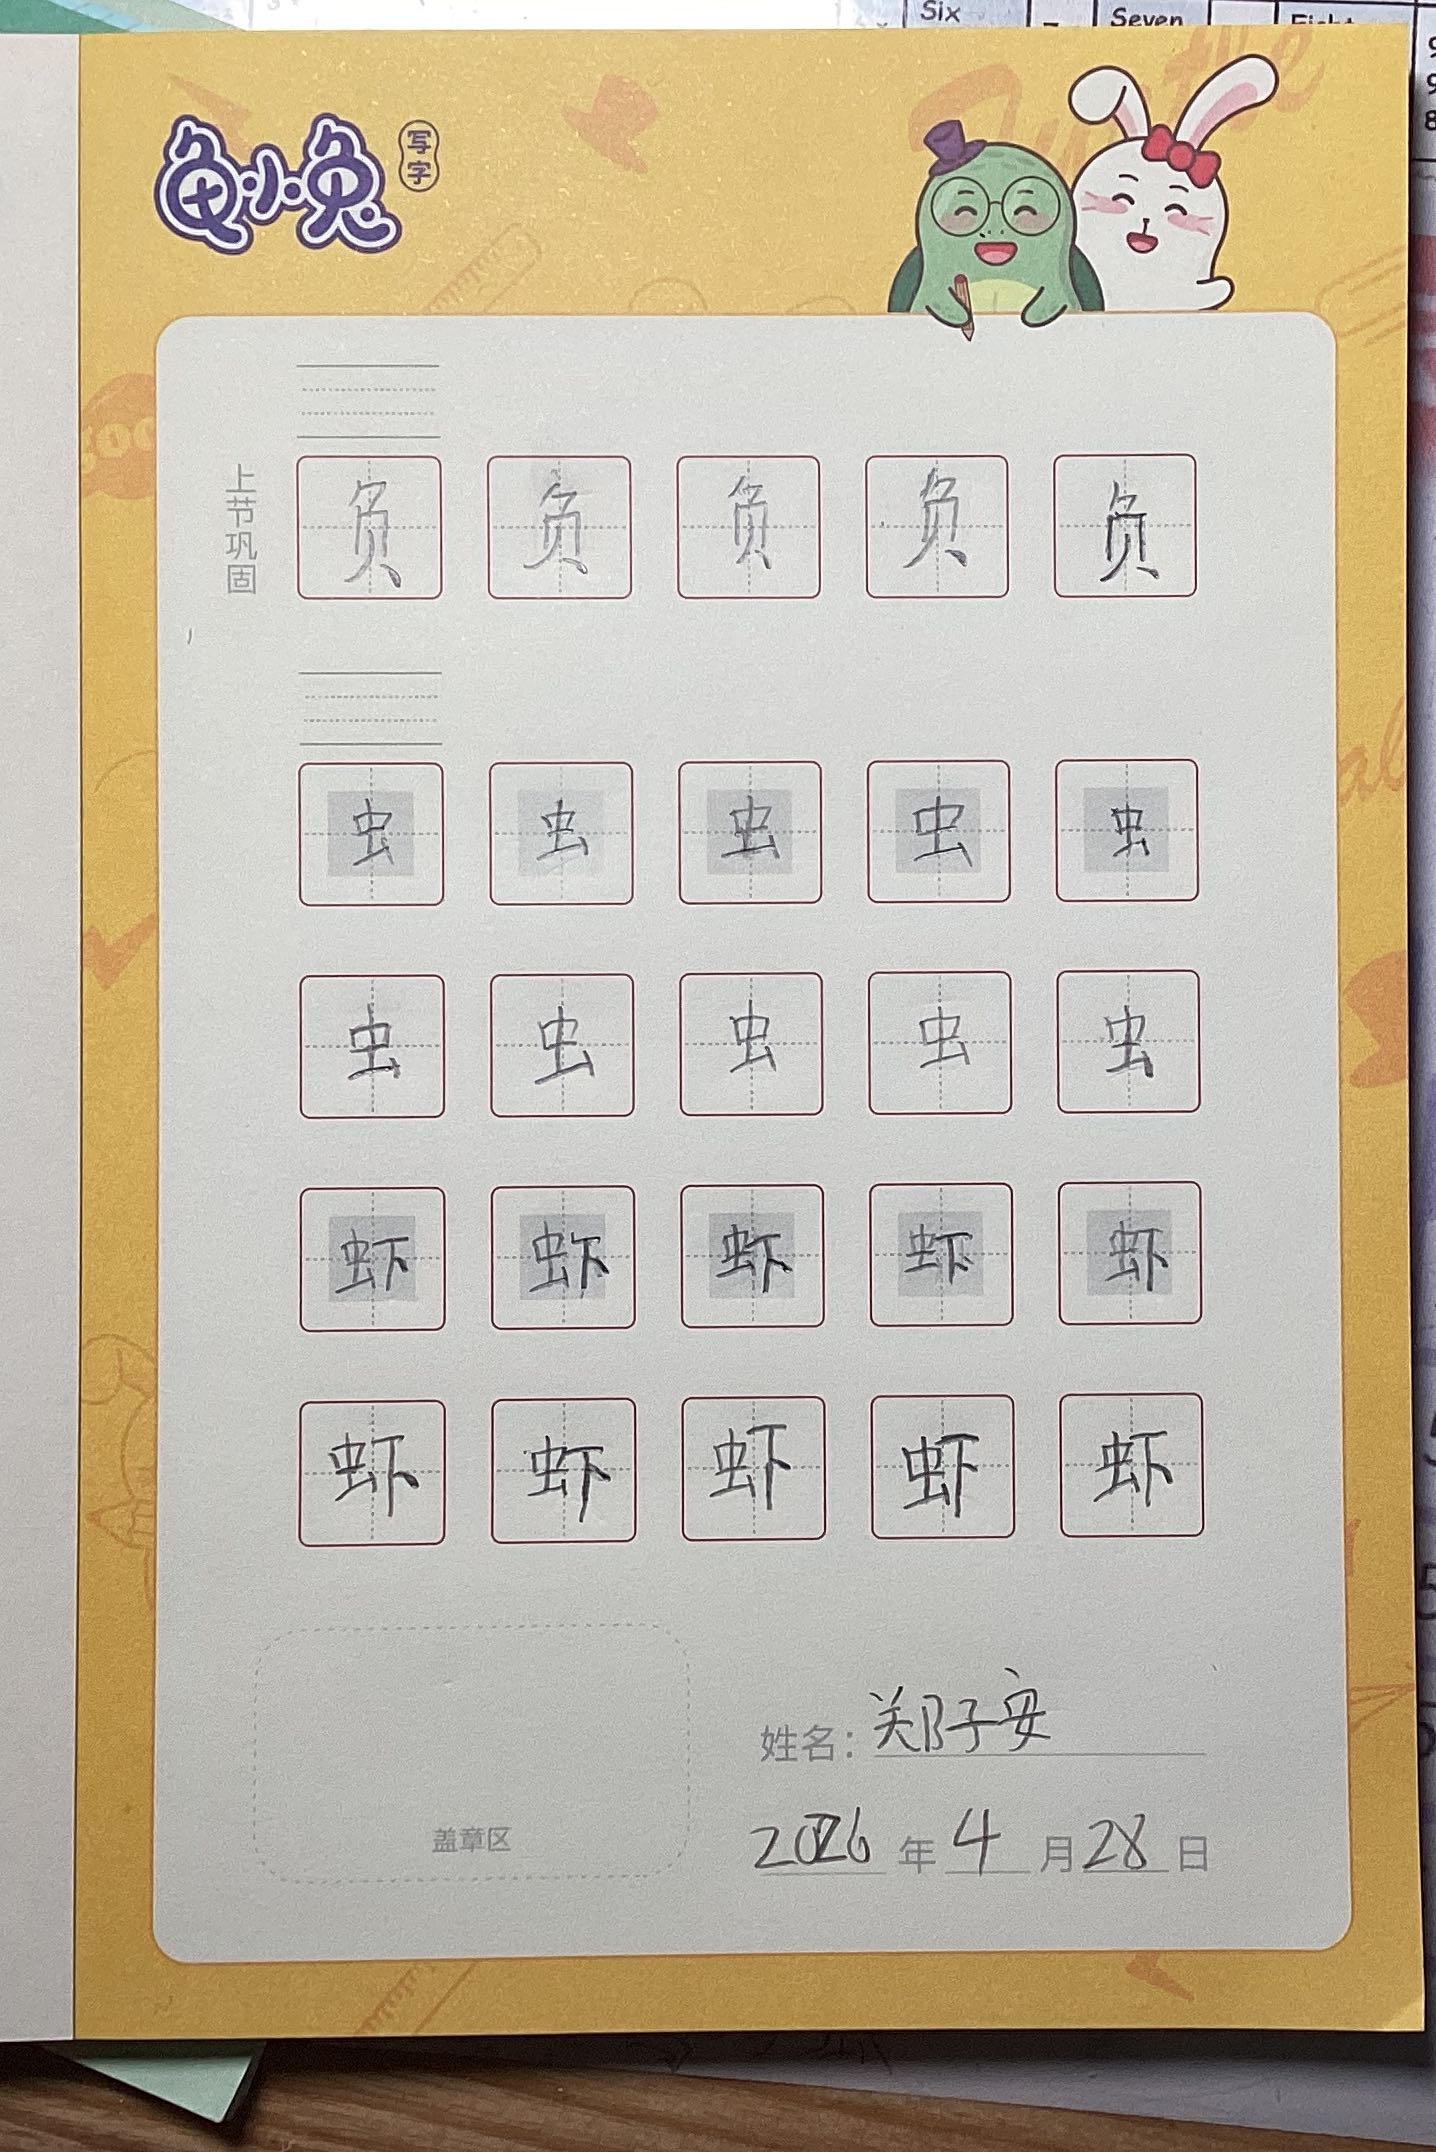 Six
Seven
龟小兔
写字
上节巩固
负 负 负 负 负
虫 虫 虫 虫 虫
虫 虫 虫 虫 虫
虾 虾 虾 虾 虾
虾 虾 虾 虾 虾
姓名：郑子安
盖章区
2026 年 4 月 28 日